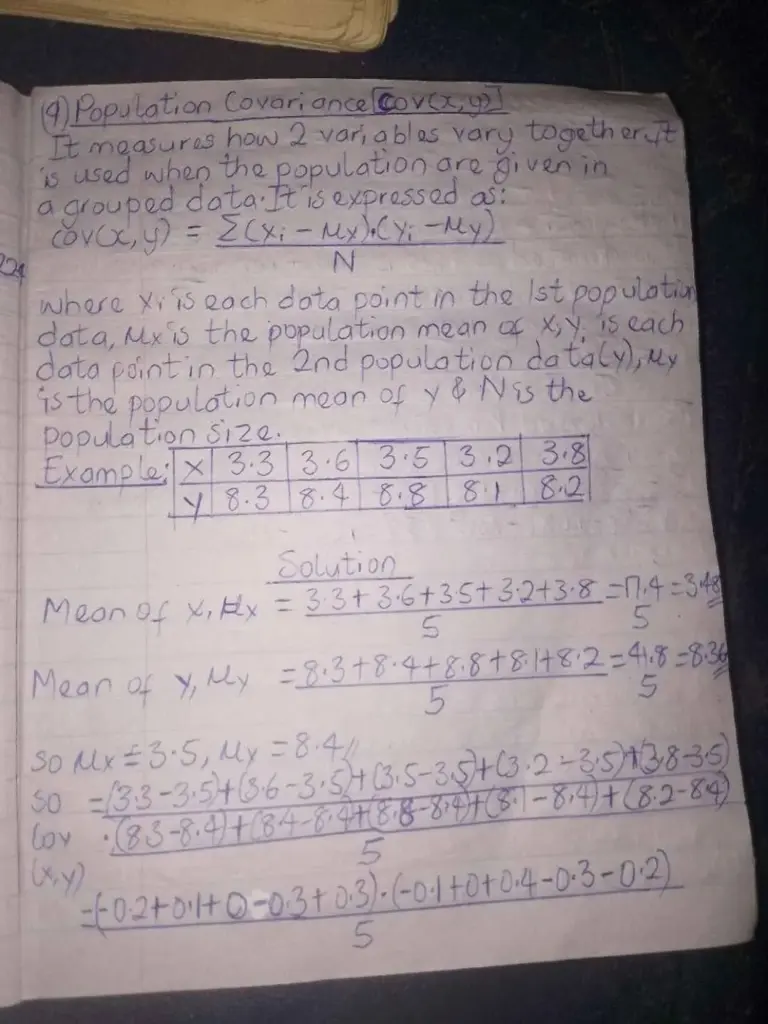 (9) Population Covariance [Cov(x,y)]
It measures how 2 variables vary together. It
is used when the population are given in
a grouped data. It is expressed as:
cov(x,y) = Σ(xi - μx).(yi - μy)
N
where xi is each data point in the 1st population
data, μx is the population mean of x, yi is each
data point in the 2nd population data(y), μy
is the population mean of y & N is the
population size.
Example: X 3.3 3.6 3.5 3.2 3.8
Y 8.3 8.4 8.8 8.1 8.2
Solution
Mean of x, μx = 3.3+3.6+3.5+3.2+3.8 = 17.4 = 3.48
5 5
Mean of y, μy = 8.3+8.4+8.8+8.1+8.2 = 41.8 = 8.36
5 5
so μx = 3.5, μy = 8.4
so = (3.3-3.5)+(3.6-3.5)+(3.5-3.5)+(3.2-3.5)+(3.8-3.5)
Cov .(8.3-8.4)+(8.4-8.4)+(8.8-8.4)+(8.1-8.4)+(8.2-8.4)
(x,y) 5
=(-0.2+0.1+0-0.3+0.3).(-0.1+0+0.4-0.3-0.2)
5